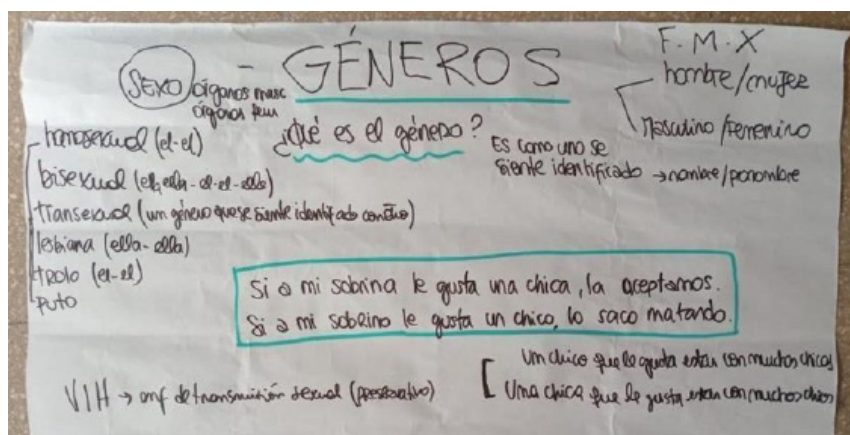 GÉNEROS
F. M. X
hombre/mujer
Masculino/Femenino
SEXO órganos masc
órganos fem
¿Qué es el género?
Es como uno se
siente identificado → nombre/pronombre
homosexual (el-el)
bisexual (el, ella-el-el-ella)
transexual (un género que se siente identificado con otro)
lesbiana (ella-ella)
trolo (el-el)
puto
Si a mi sobrina le gusta una chica, la aceptamos.
Si a mi sobrino le gusta un chico, lo saco matando.
VIH → enf de transmisión sexual (preservativo)
Un chico que le gusta estar con muchas chicas
Una chica que le gusta estar con muchos chicos